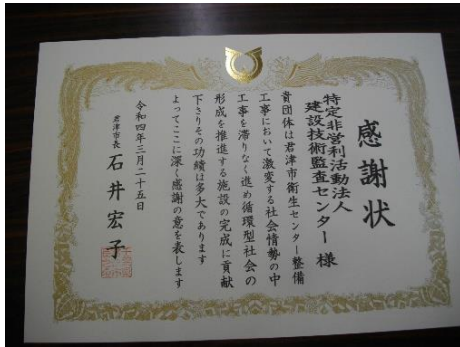 感謝状
特定非営利活動法人
建設技術監査センター 様
貴団体は君津市衛生センター整備
工事において激変する社会情勢の中
工事を滞りなく進め循環型社会の
形成を推進する施設の完成に貢献
下さりその功績は多大であります
よってここに深く感謝の意を表します
令和四年三月二十五日
君津市長 石井宏子